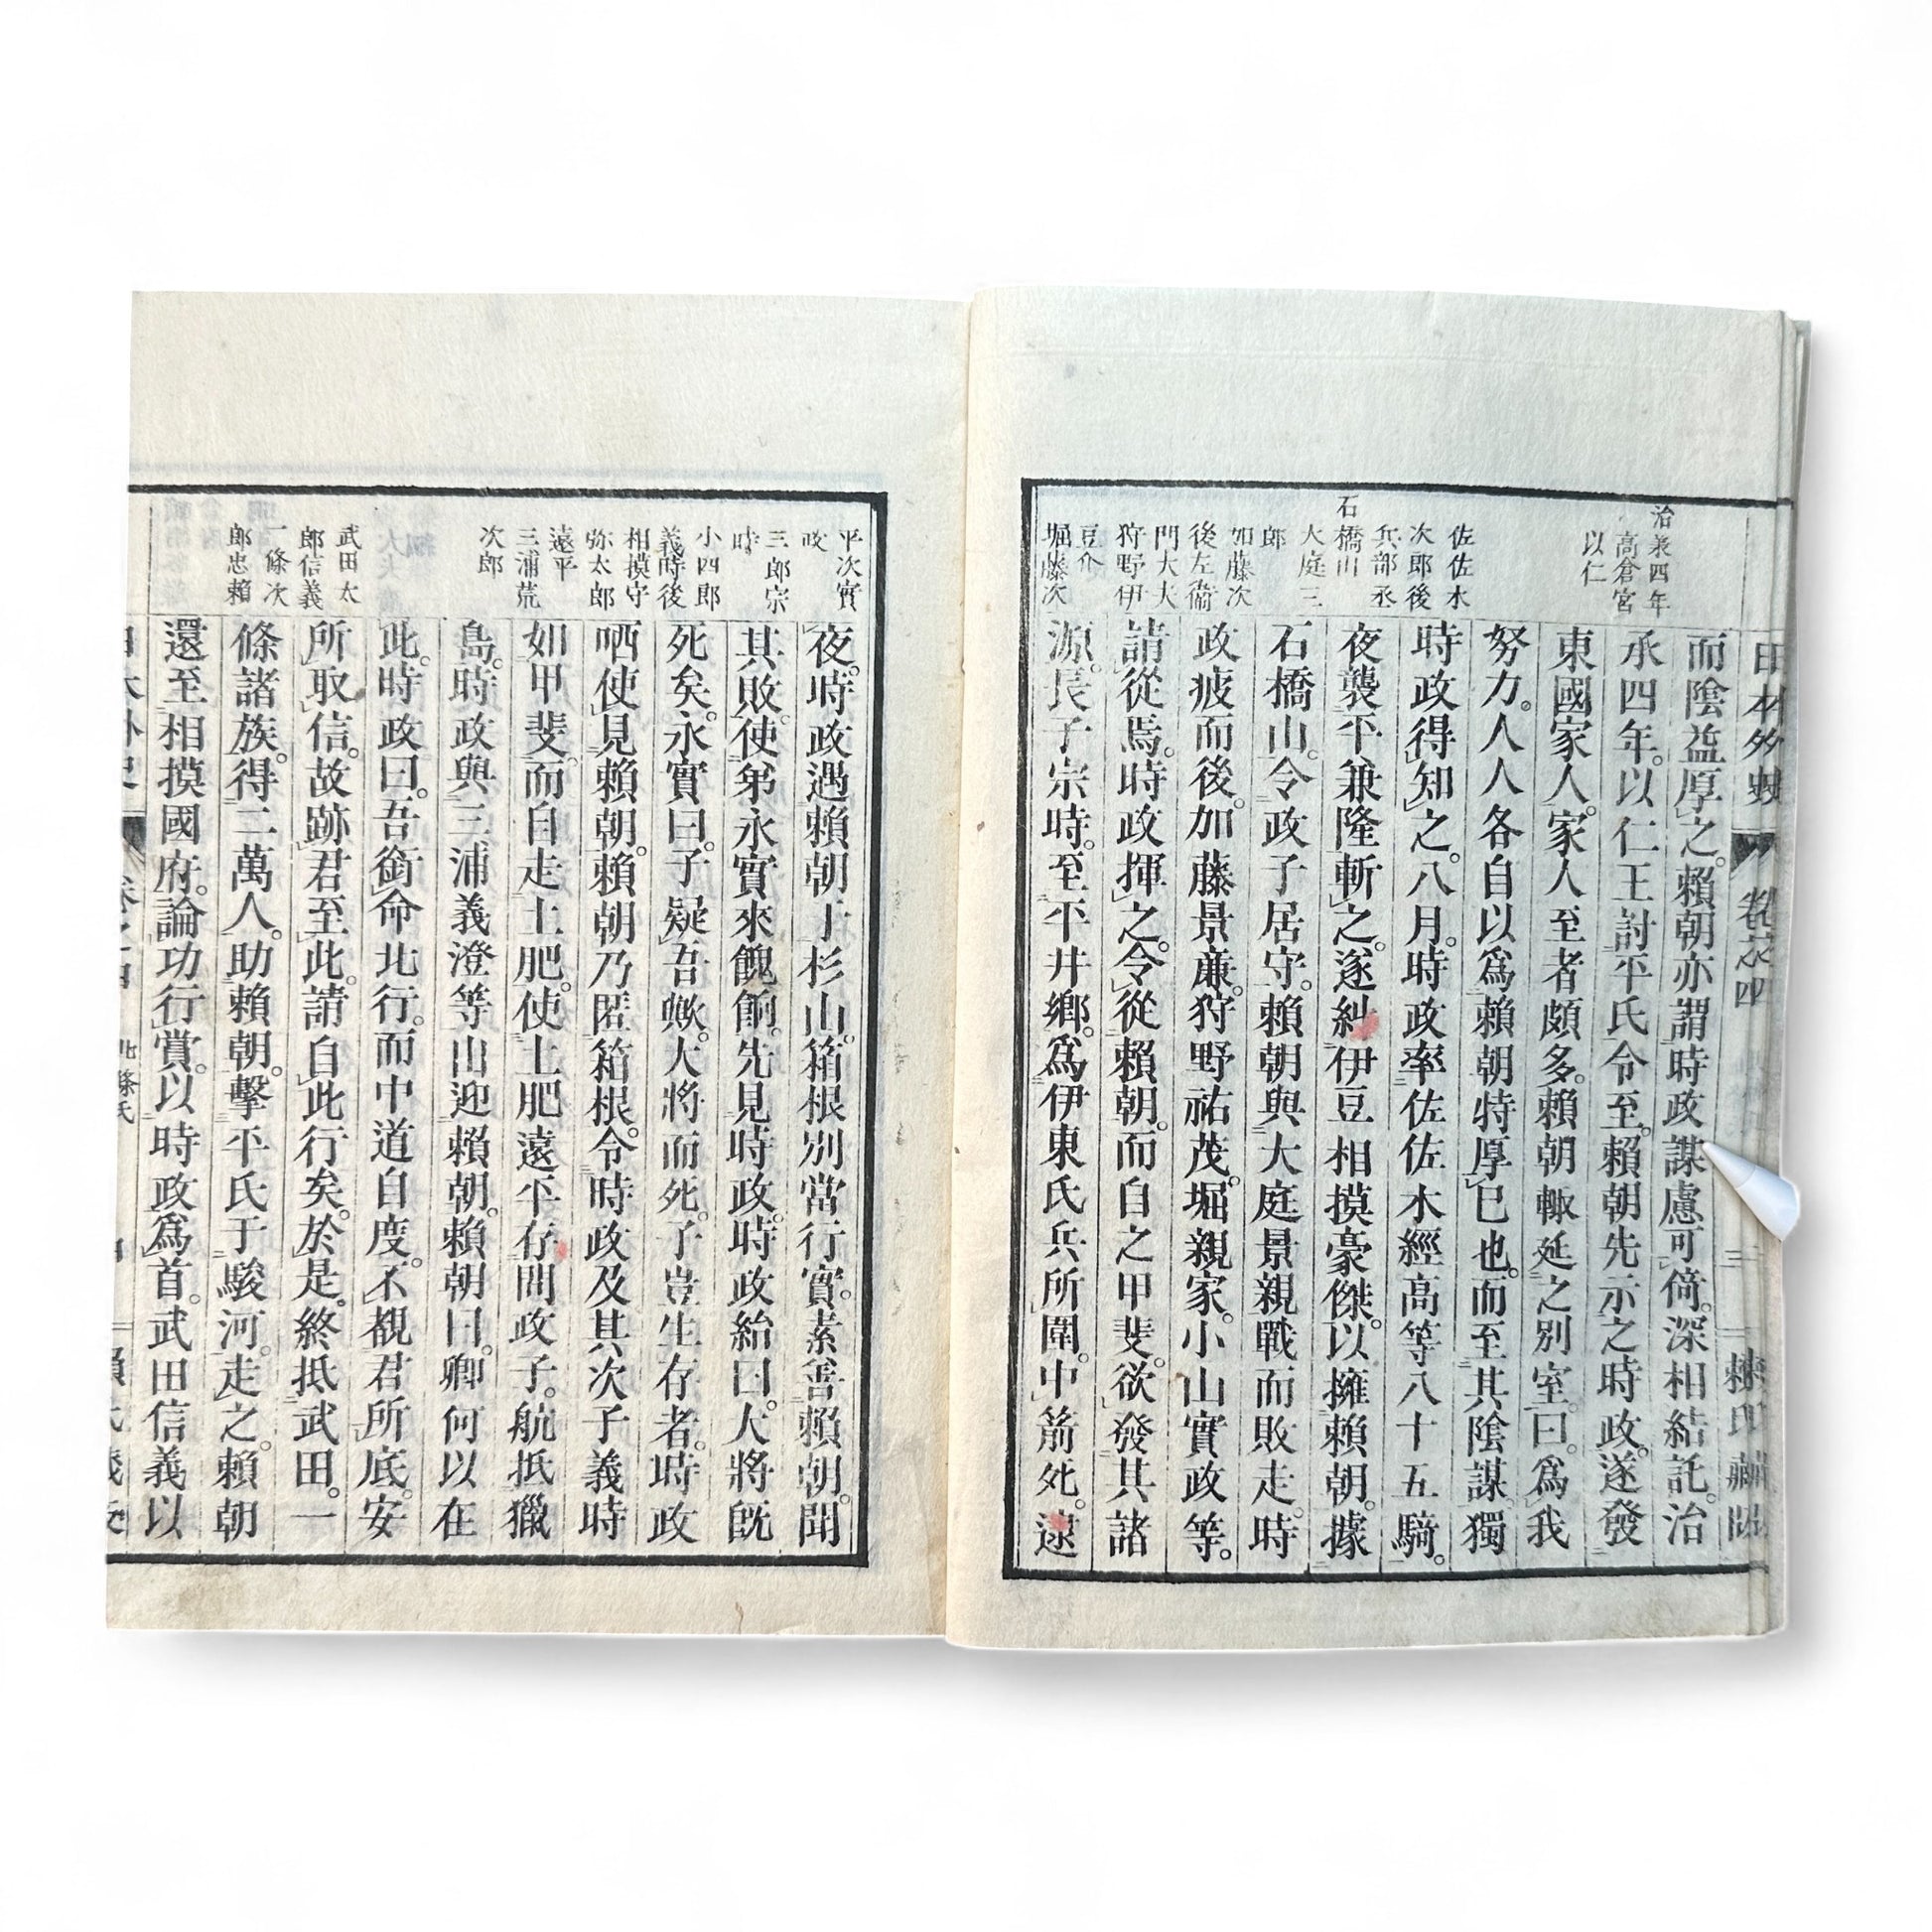 日本外史 卷之四 三 賴氏藏版
治承四年
高倉宮
以仁
佐佐木
次郎後
兵部丞
石橋山
大庭三
郎
加藤次
後左衞
門大夫
狩野伊
豆介
堀藤次
而陰益厚之。賴朝亦謂時政謀慮可倚。深相結託。治
承四年。以仁王討平氏令至。賴朝先示之時政。遂發
東國家人。家人至者頗多。賴朝輙延之別室。曰。爲我
努力。人人各自以爲賴朝特厚已也。而至其陰謀獨
時政得知之。八月。時政率佐佐木經高等八十五騎。
夜襲平兼隆斬之。遂糾伊豆相摸豪傑。以擁賴朝。據
石橋山。令政子居守。賴朝與大庭景親戰而敗走。時
政疲而後。加藤景廉。狩野祐茂。堀親家。小山實政等。
請從焉。時政揮之。令從賴朝。而自之甲斐。欲發其諸
源。長子宗時。至平井鄉。爲伊東氏兵所圍。中箭死。遠
平次實
政
三郎宗
時
小四郎
義時後
相摸守
弥太郎
遠平
三浦荒
次郎
武田太
郎信義
一條次
郎忠賴
夜。時政遇賴朝于杉山。箱根別當行實。素善賴朝。聞
其敗。使弟永實來餽餉。先見時政。時政紿曰。大將既
死矣。永實曰。子疑吾歟。大將而死。子豈生存者。時政
哂使見賴朝。賴朝乃匿箱根。令時政及其次子義時
如甲斐。而自走土肥。使土肥遠平存問政子。航抵獵
島。時政與三浦義澄等出迎賴朝。賴朝曰。卿何以在
此。時政曰。吾銜命北行。而中道自度。不覩君所底。安
所取信。故跡君至此。請自此行矣。於是。終抵武田。一
條諸族。得二萬人。助賴朝。擊平氏于駿河。走之。賴朝
還至相摸國府。論功行賞。以時政爲首。武田信義以
日本外史 卷之四 北條氏